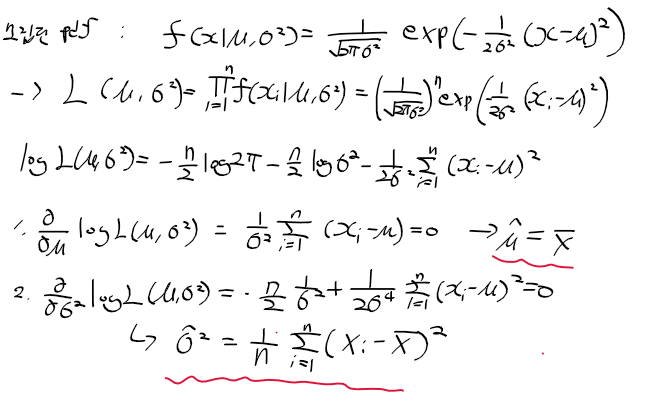 pdf : f(x|μ,σ²)= 1/√(2πσ²) exp(-1/(2σ²) (x-μ)²)
-> L(μ,σ²)= ∏_{i=1}^{n} f(x_i|μ,σ²) = (1/√(2πσ²))^n exp(1/(2σ²) (x_i-μ)²)
log L(μ,σ²)= -n/2 log2π - n/2 logσ² - 1/(2σ²) Σ_{i=1}^{n} (x_i-μ)²
1. ∂/∂μ log L(μ,σ²) = 1/σ² Σ_{i=1}^{n} (x_i-μ)=0 → μ̂ = X̄
2. ∂/∂σ² log L(μ,σ²) = -n/2 1/σ² + 1/(2σ⁴) Σ_{i=1}^{n} (x_i-μ)²=0
↳ σ̂² = 1/n Σ_{i=1}^{n} (X_i - X̄)²